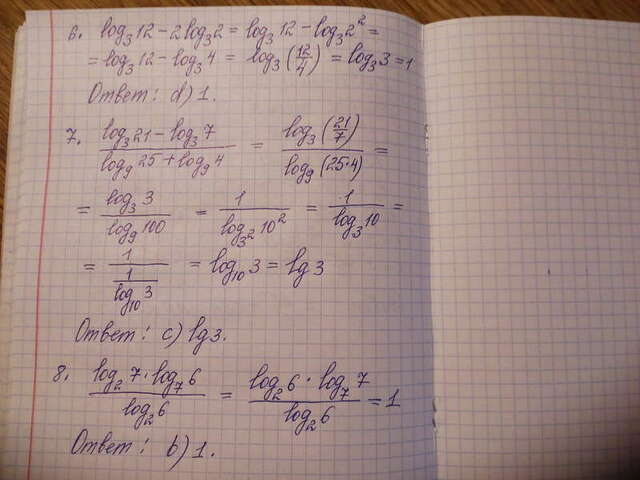 6. log₃12 - 2log₃2 = log₃12 - log₃2² =
= log₃12 - log₃4 = log₃(12/4) = log₃3 = 1
Ответ: d) 1.
7. (log₃21 - log₃7)/(log₉25 + log₉4) = log₃(21/7)/log₉(25·4) =
= log₃3/log₉100 = 1/log₃²10² = 1/log₃10 =
= 1/(1/log₁₀3) = log₁₀3 = lg3
Ответ: c) lg3.
8. (log₂7·log₇6)/log₂6 = (log₂6·log₇7)/log₂6 = 1
Ответ: b) 1.